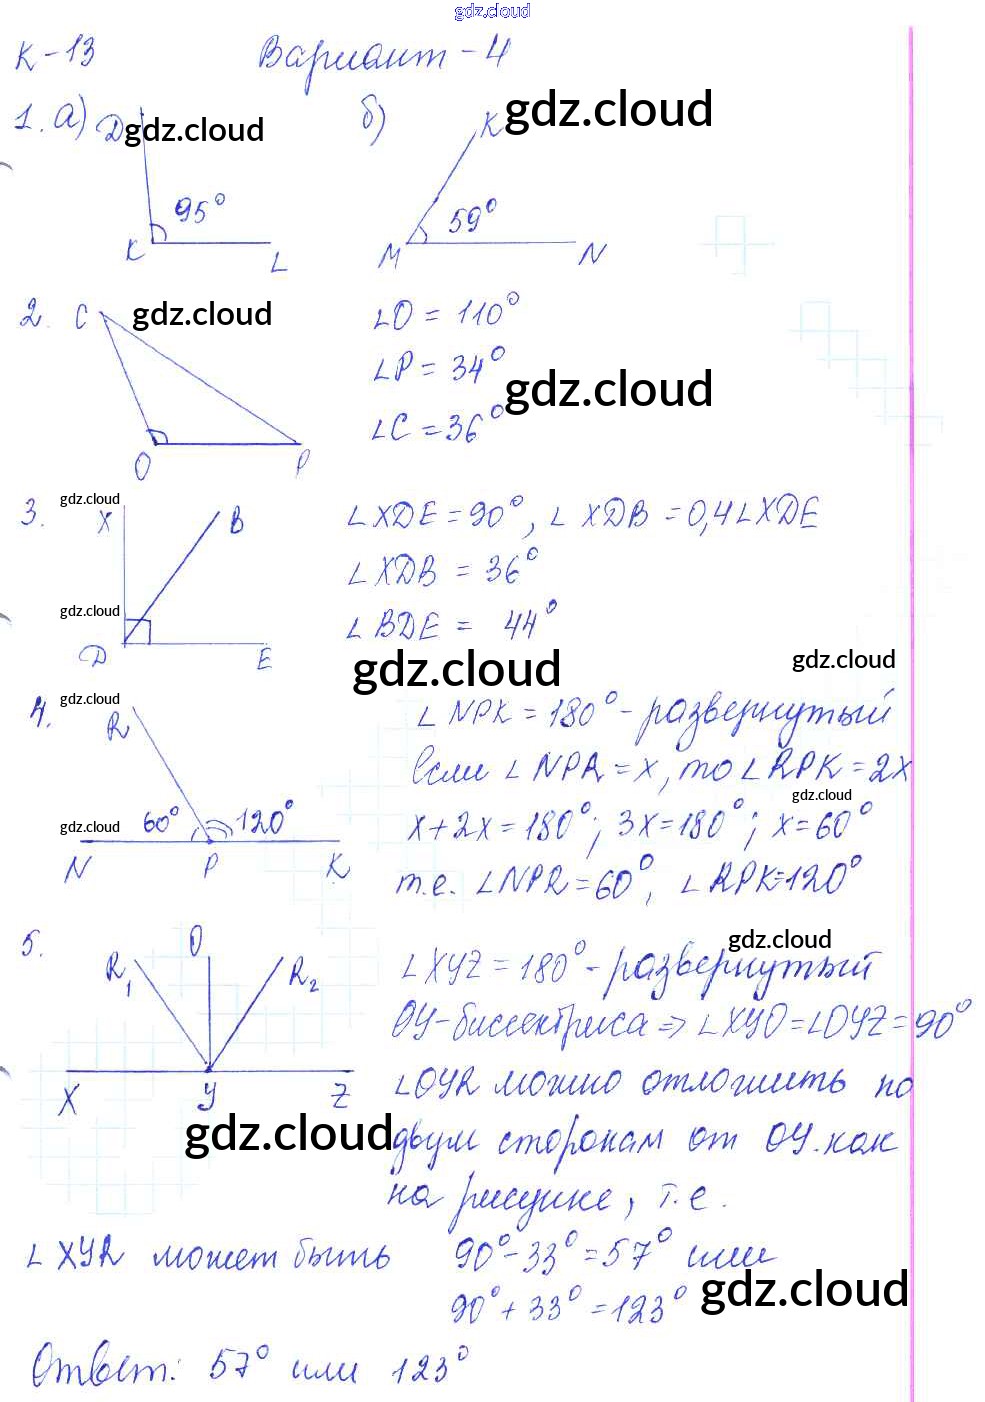 gdz.cloud
К-13 Вариант-4
1. а) D gdz.cloud б) K gdz.cloud
95° 59°
K L M N
2. C gdz.cloud ∠O = 110°
∠P = 34°
gdz.cloud
∠C = 36°
O P
gdz.cloud
3. X B ∠XDE = 90°, ∠XDB = 0,4∠XDE
∠XDB = 36°
gdz.cloud
∠BDE = 44°
D E gdz.cloud gdz.cloud
gdz.cloud
4. R ∠NPK = 180° - развернутый
если ∠NPR = x, то ∠RPK = 2x
gdz.cloud
gdz.cloud 60° 120° x + 2x = 180°; 3x = 180°; x = 60°
N P K т.е. ∠NPR = 60°, ∠RPK = 120°
5. O gdz.cloud
R₁ R₂ ∠XYZ = 180° - развернутый
OY-биссектриса ⇒ ∠XYO = ∠OYZ = 90°
X Y Z ∠OYR можно отложить по
gdz.cloud двум сторонам от OY. как
на рисунке, т.е.
∠XYR может быть 90° - 33° = 57° или
gdz.cloud
90° + 33° = 123°
Ответ: 57° или 123°